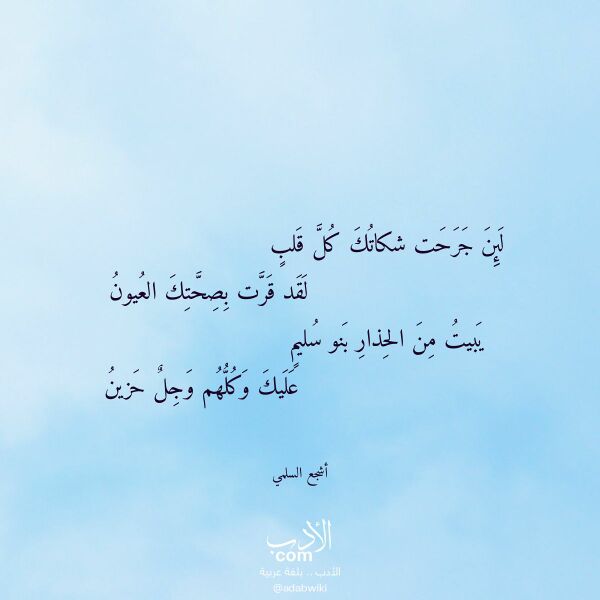 لَئِنَ جَرَحَت شكاتُكَ كُلَّ قَلبٍ
لَقَد قَرَّت بِصِحَّتِكَ العُيونُ
يَبيتُ مِنَ الحِذارِ بَنو سُليمٍ
عَلَيكَ وَكُلُّهُم وَجِلٌ حَزينُ
أشجع السلمي
الأدب
.com
الأدب .. بلغة عربية
@adabwiki